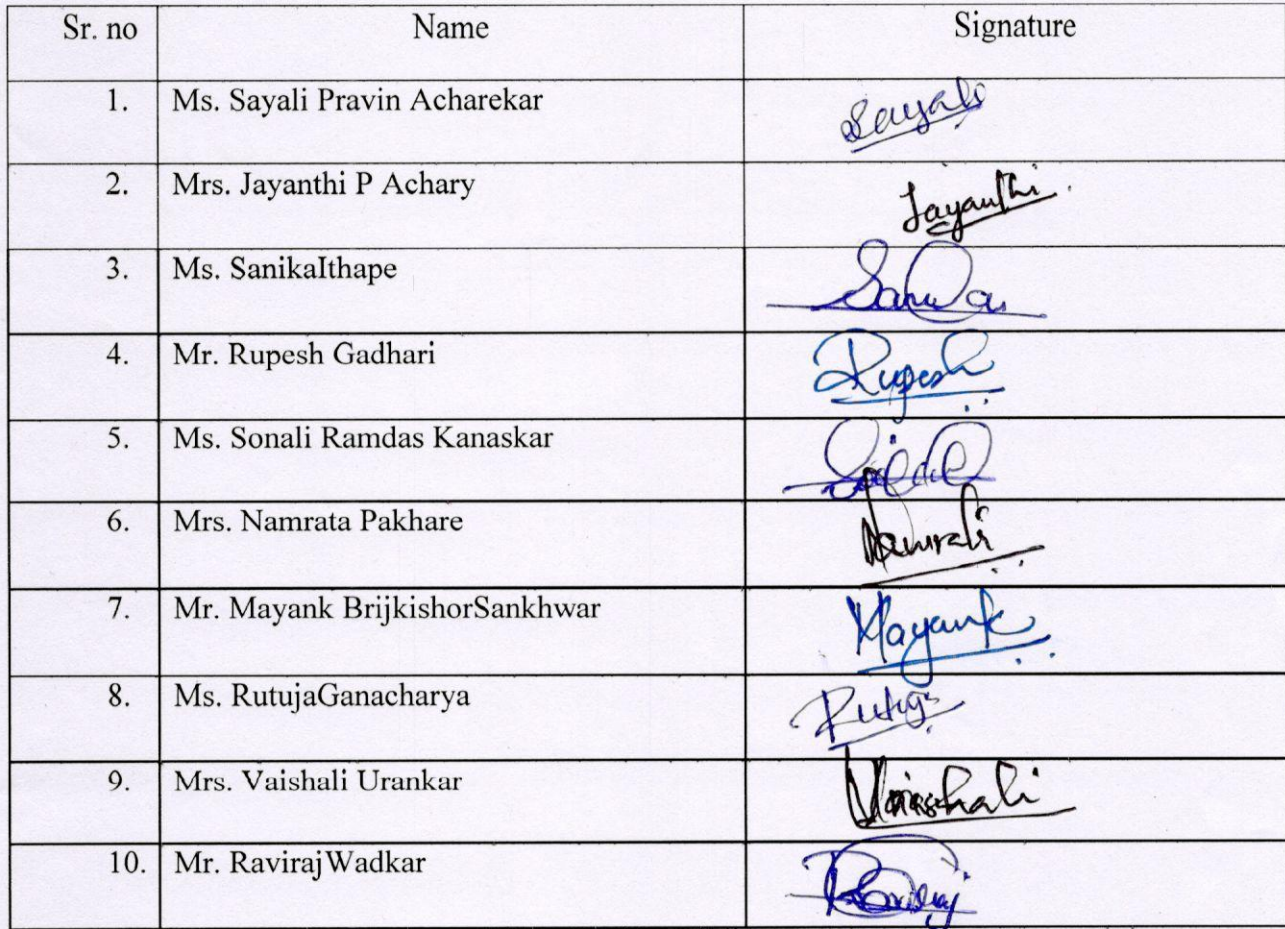 Sr. no Name Signature
1. Ms. Sayali Pravin Acharekar Sayali
2. Mrs. Jayanthi P Achary Jayanthi
3. Ms. SanikaIthape
4. Mr. Rupesh Gadhari Rupesh
5. Ms. Sonali Ramdas Kanaskar
6. Mrs. Namrata Pakhare
7. Mr. Mayank BrijkishorSankhwar Mayank
8. Ms. RutujaGanacharya
9. Mrs. Vaishali Urankar Vaishali
10. Mr. RavirajWadkar